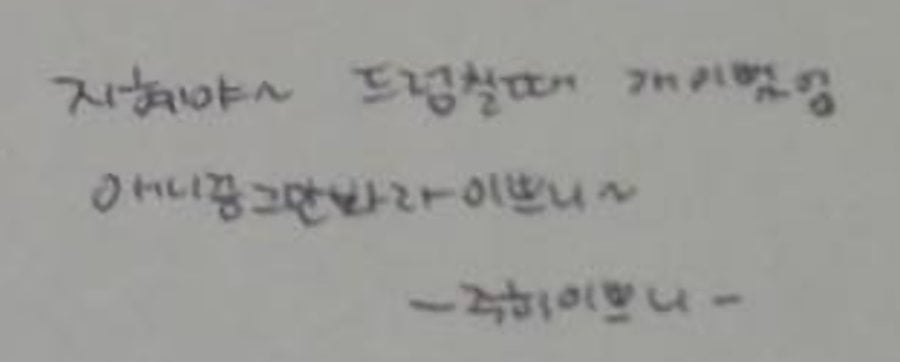 지혜야~ 드럼칠때 개이쁨임
애니꿈그만봐라이쁘니~
-주희이쁘니-